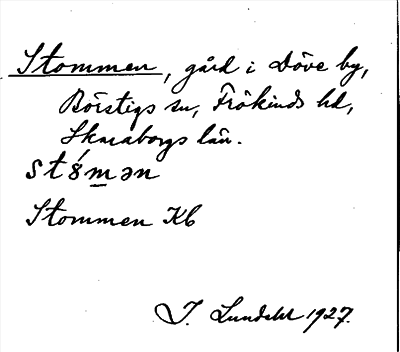 Stommen, gård i Döve by,
Börstigs sn, Frökinds hd,
Skaraborgs län.
st8́mən
Stommen Kb
J. Lundahl 1927.